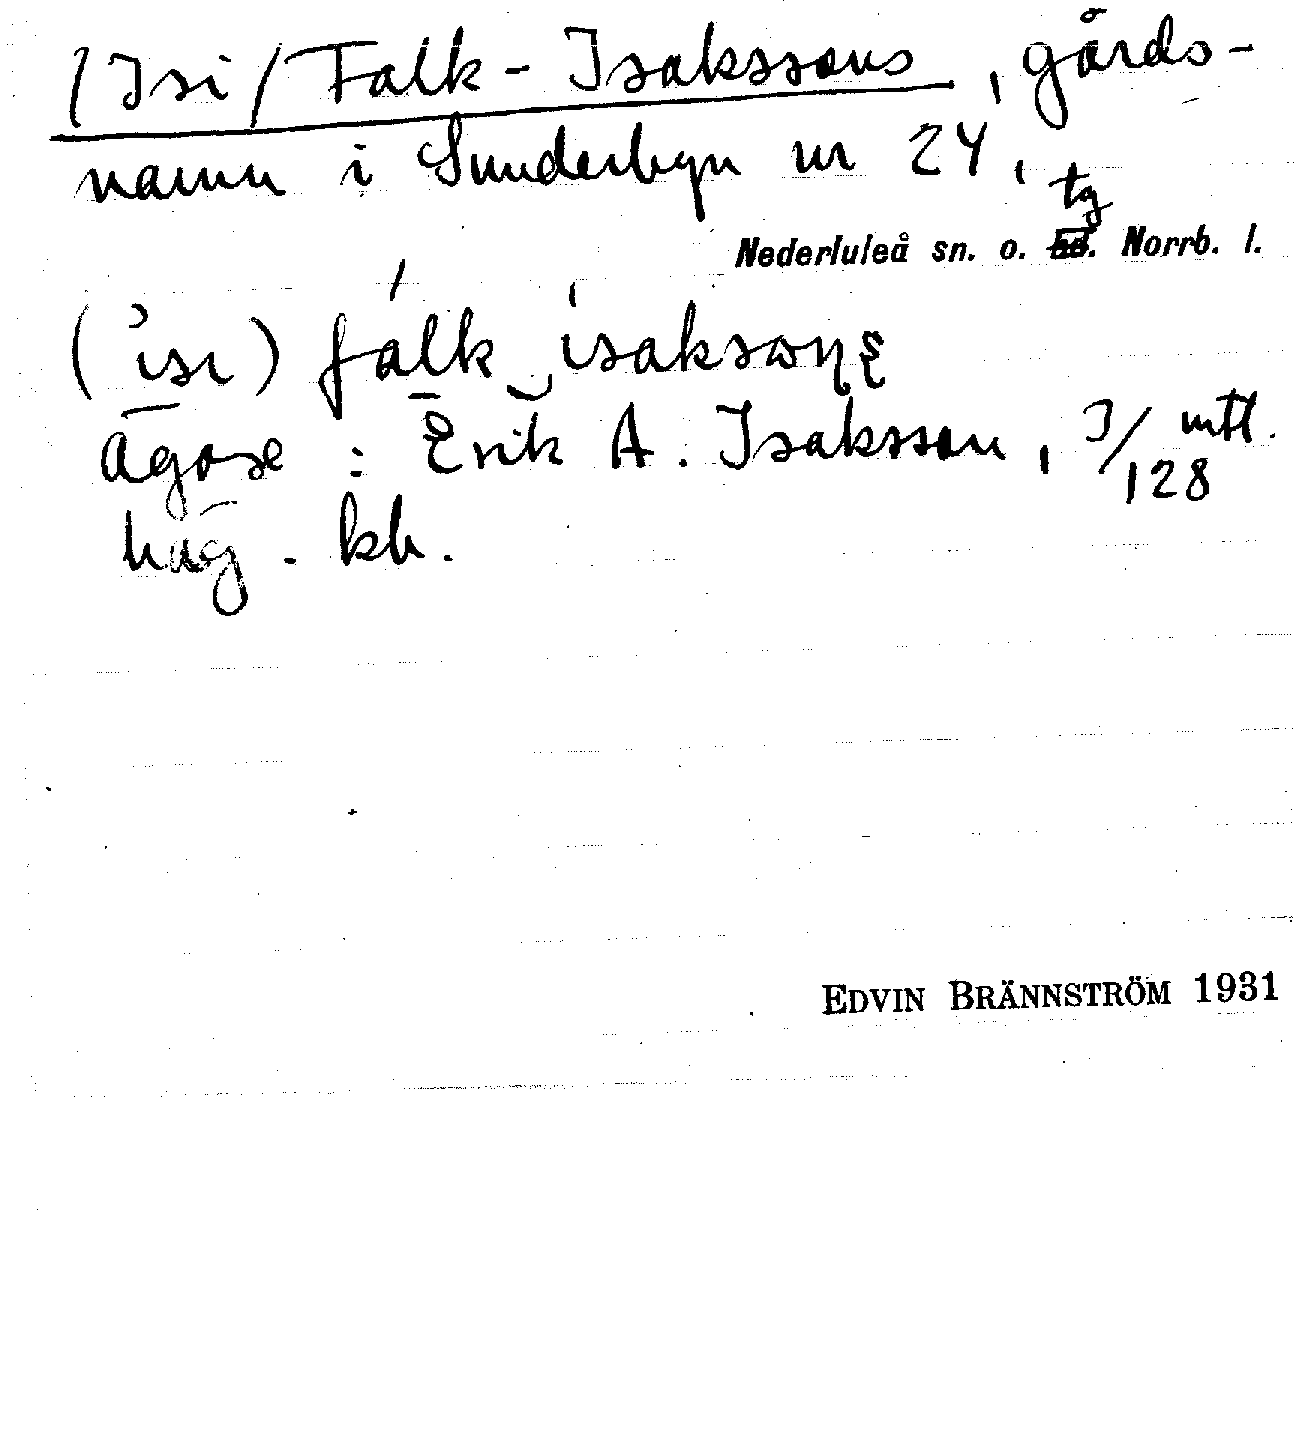 /Isi/ Falk-Isakssons, gårds-
namn i Sunderbyn nr 24,
tg
Nederluleå sn. o. hd. Norrb. l.
(isi) falk isaksonę
Ägare: Erik A. Isaksson, 3/128 mtl.
häg. kh.
EDVIN BRÄNNSTRÖM 1931